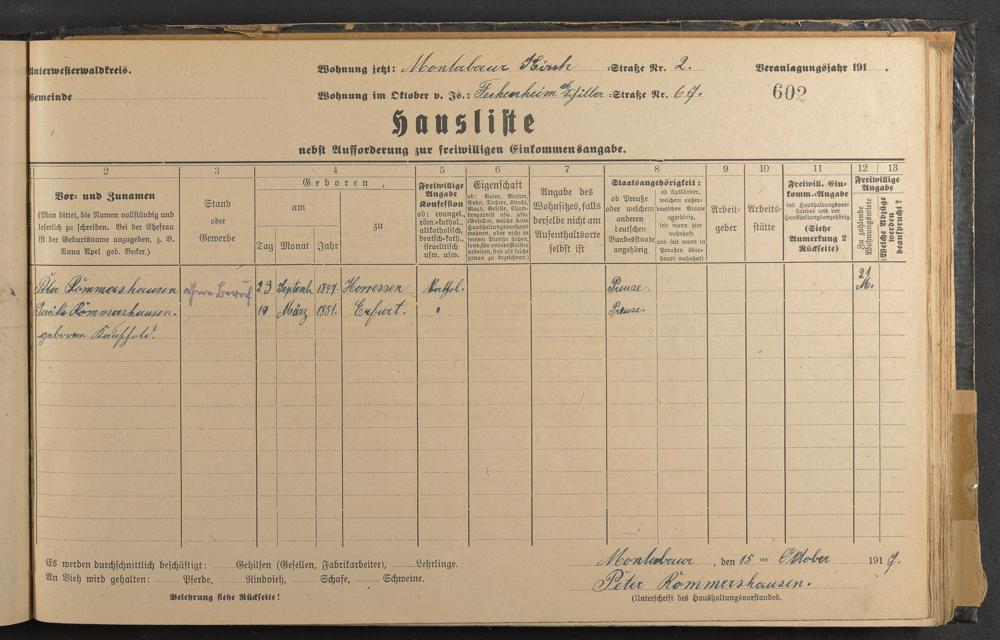 Unterwesterwaldkreis.
Wohnung jetzt: Montabaur Kirch -Straße Nr. 2.
Veranlagungsjahr 191 .
Gemeinde
Wohnung im Oktober v. Js.: Feckenheim Schiller -Straße Nr. 67.
602
Hausliste
nebst Aufforderung zur freiwilligen Einkommensangabe.
2 3 4 5 6 7 8 9 10 11 12 13
Vor- und Zunamen
(Man bittet, die Namen vollständig und
leserlich zu schreiben. Bei der Ehefrau
ist der Geburtsname anzugeben, z. B.
Anna Apel geb. Becker.)
Stand
oder
Gewerbe
Geboren
am
zu
Tag Monat Jahr
Freiwillige
Angabe
Konfession
ob: evangel.,
röm.-kathol.,
altkatholisch,
deutsch-kath.,
israelitisch
usw. usw.
Eigenschaft
ob: Vater, Mutter,
Sohn, Tochter, Knecht,
Magd, Geselle, Cham-
bregarnist usw. usw.
(Gesellen, welche beim
Haushaltungsvorstand
wohnen, aber nicht in
dessen Dienste stehen,
sondern anderweitig
arbeiten, sind als solche
genau zu bezeichnen.)
Angabe des
Wohnsitzes, falls
derselbe nicht am
Aufenthaltsorte
selbst ist
Staatsangehörigkeit:
ob Preuße
oder welchem
anderen
deutschen
Bundesstaate
angehörig
ob Ausländer,
welchem außer-
deutschen Staate
angehörig,
und seit wann hier
wohnhaft
und seit wann in
Preußen über-
haupt wohnhaft
Arbeit-
geber
Arbeits-
stätte
Freiwill. Ein-
komm.-Angabe
des Haushaltungsvor-
standes und der
Haushaltungsangehörig.
(Siehe
Anmerkung 2
Rückseite)
Freiwillige
Angabe
Zu zahlende
Wohnungsmiete
Welche Abzüge
werden
beansprucht?
Peter Rommershausen ohne Beruf 23 Septemb. 1847. Horressen Kathol. Preuse. 21 M.
Rommershausen. 19 März 1851. Erfurt. " Preuse.
geborene Kaufhold.
Es werden durchschnittlich beschäftigt: Gehilfen (Gesellen, Fabrikarbeiter), Lehrlinge.
An Vieh wird gehalten: Pferde, Rindvieh, Schafe, Schweine.
Belehrung siehe Rückseite!
Montabaur, den 15 ten Oktober 1917.
Peter Rommershausen.
(Unterschrift des Haushaltungsvorstandes.